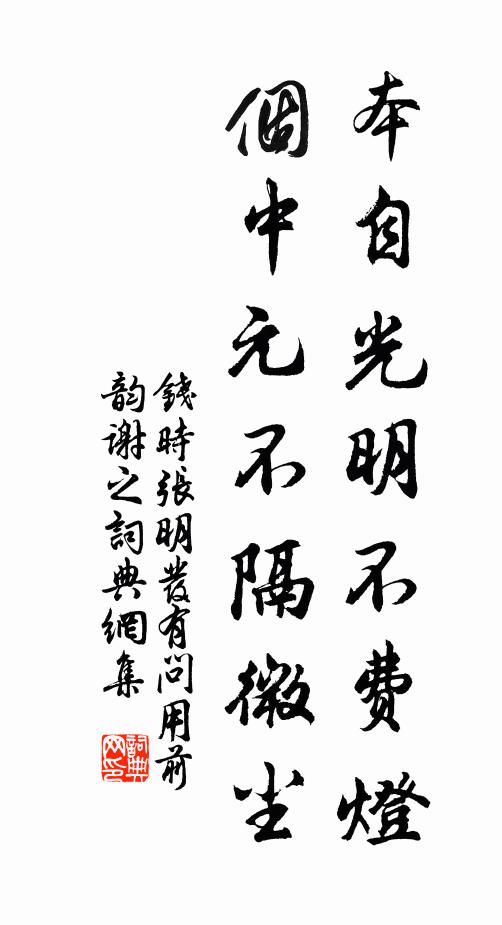 本自光明不费燈
個中元不隔微尘
錢時張明發有問用前
韵谢之詞典網集
詞典
网印